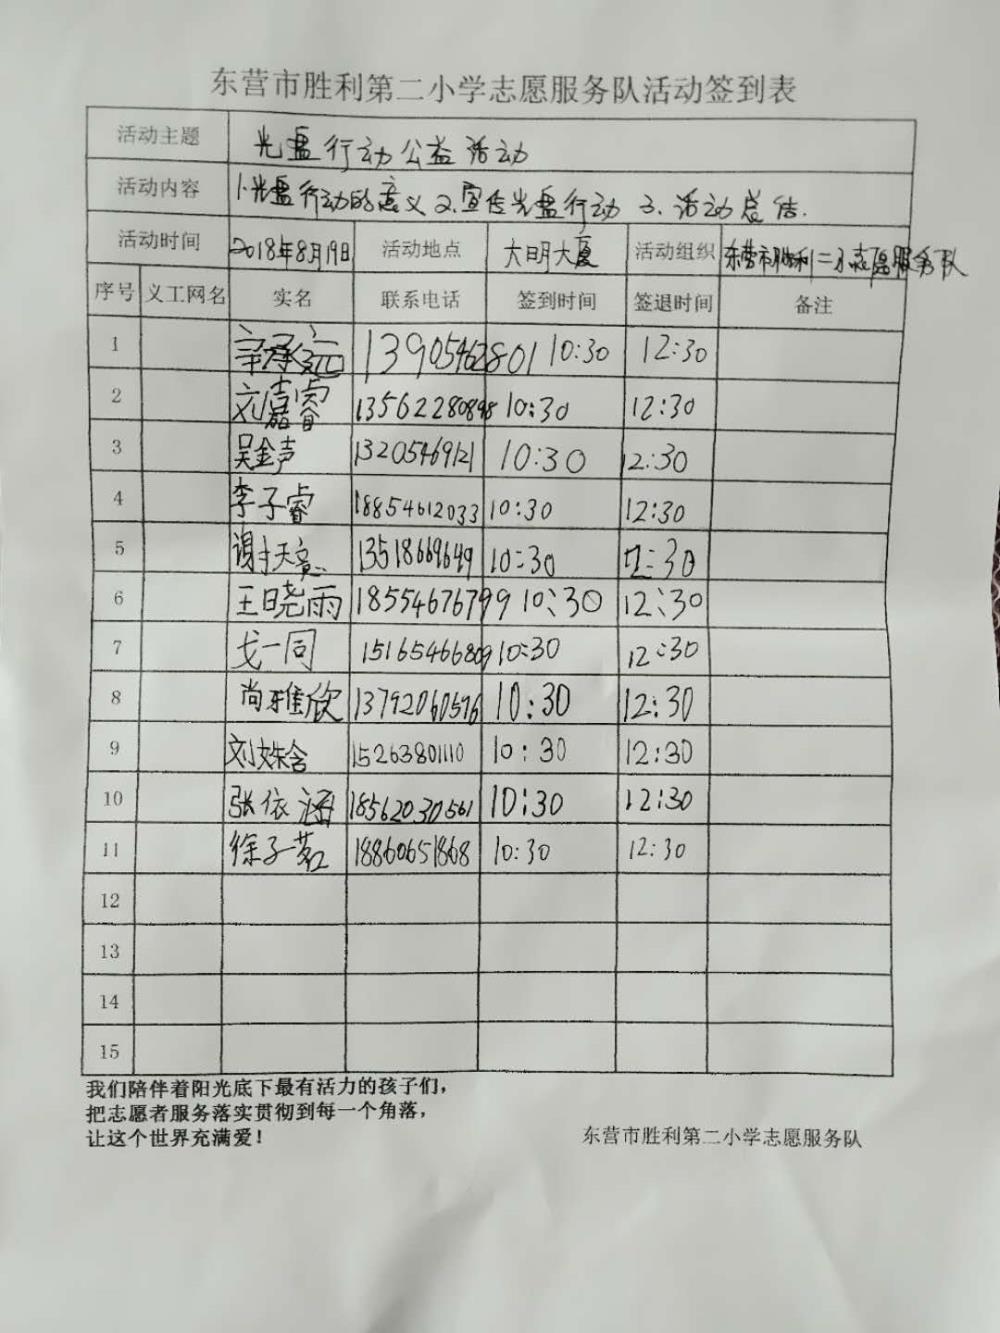 东营市胜利第二小学志愿服务队活动签到表
活动主题 光盘行动公益活动
活动内容 1.光盘行动的意义 2.宣传光盘行动 3.活动总结.
活动时间 2018年8月19日 活动地点 大明大厦 活动组织 东营市胜利二小志愿服务队
序号 义工网名 实名 联系电话 签到时间 签退时间 备注
1 辛承远 13905462801 10:30 12:30
2 刘嘉睿 13562280898 10:30 12:30
3 吴金声 13205469121 10:30 12:30
4 李子睿 18854612033 10:30 12:30
5 谢天意 13518669649 10:30 12:30
6 王晓雨 18554676799 10:30 12:30
7 戈一同 15165466809 10:30 12:30
8 尚雅欣 13792060596 10:30 12:30
9 刘姝含 15263801110 10:30 12:30
10 张依涵 18562030561 10:30 12:30
11 徐子茗 18860651868 10:30 12:30
12
13
14
15
我们陪伴着阳光底下最有活力的孩子们，
把志愿者服务落实贯彻到每一个角落，
让这个世界充满爱！
东营市胜利第二小学志愿服务队